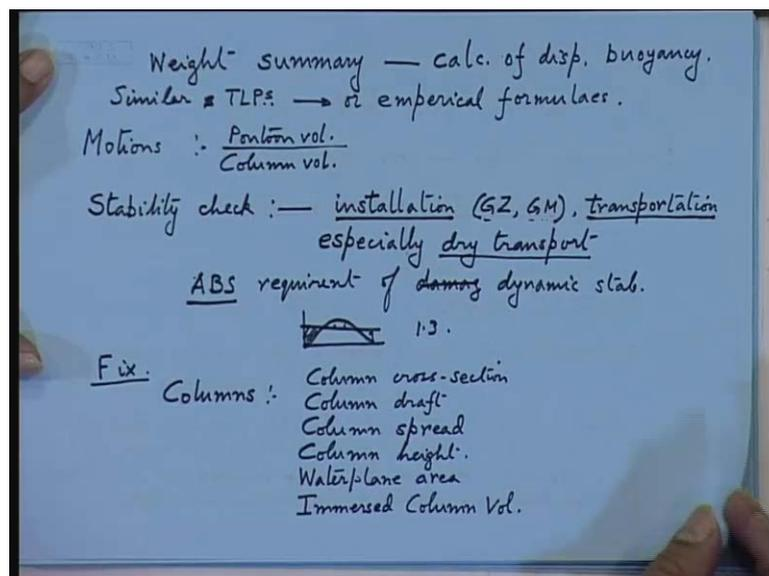 Weight summary — calc. of disp. buoyancy.
Similar TLPs. → or emperical formulaes.
Motions :- Pontoon vol.
Column vol.
Stability check :— installation (GZ, GM), transportation
especially dry transport
ABS requirent of damag dynamic stab.
1.3.
Fix.
Columns :- Column cross-section
Column draft
Column spread
Column height.
Waterplane area
Immersed Column Vol.